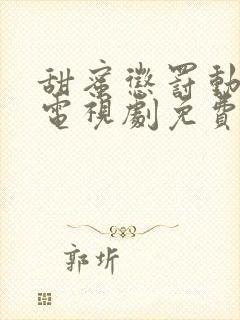 甜蜜懲罰動
電視劇免費
郭圻